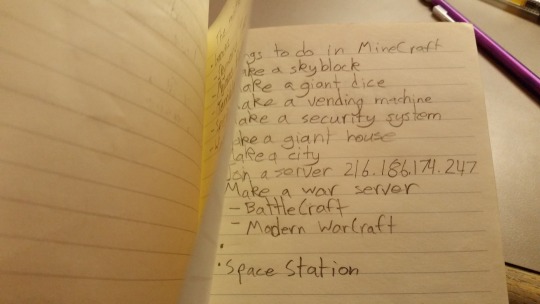 gs to do in MineCraft
ake a skyblock
ake a giant dice
ake a vending machine
ake a security system
ake a giant house
ake a city
on a server 216.186.174.247
Make a war server
- BattleCraft
- Modern WarCraft
•
• Space Station